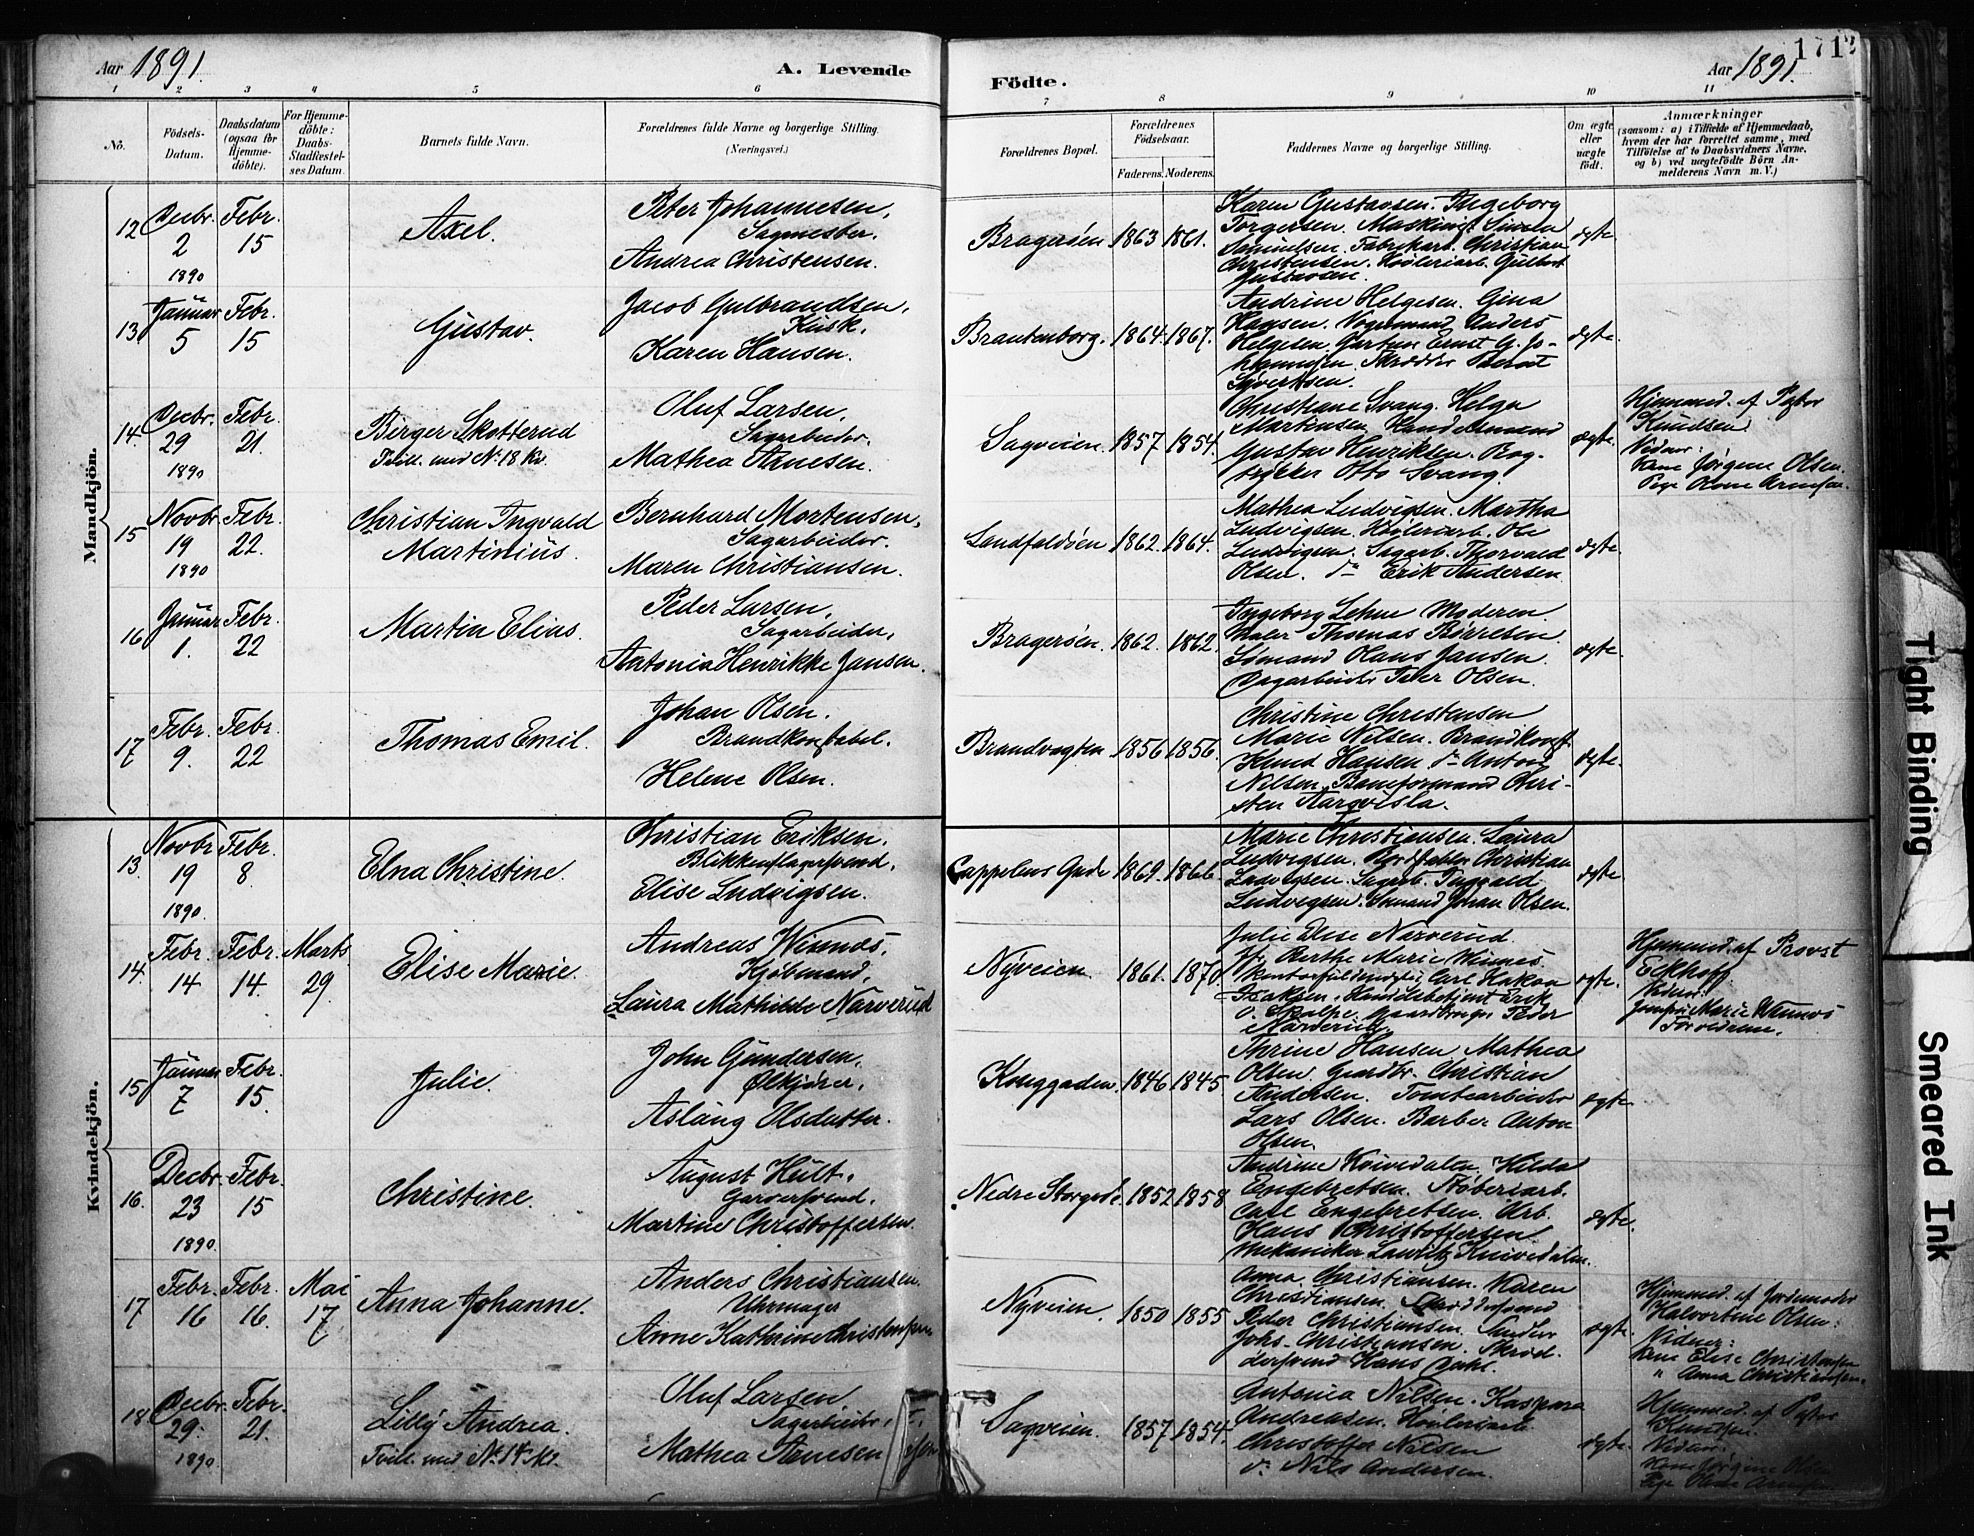 Aar 1891.
A. Levende
Födte.
Aar 1891.
171
1 2 3 4 5 6 7 8 9 10 11
No.
Födsels-
Datum.
Daabsdatum
(ogsaa för
Hjemme-
döbte).
For Hjemme-
döbte:
Daabs-
Stadfæstel-
ses Datum.
Barnets fulde Navn.
Forældrenes fulde Navne og borgerlige Stilling.
(Næringsvei.)
Forældrenes Bopæl.
Forældrenes
Födselsaar.
Faderens. Moderens.
Faddernes Navne og borgerlige Stilling.
Om ægte
eller
uægte
födt.
Anmærkninger
(saasom: a) i Tilfælde af Hjemmedaab,
hvem der har forrettet samme, med
Tilföielse af to Daabsvidners Navne,
og b) ved uægtefödte Börn An-
melderens Navn m. V.)
Mandkjön.
12
Decbr.
2
1890
Febr.
15
Axel.
Peter Johannesen,
Sagmester.
Andrea Christensen.
Bragerøen
1863
1861.
Karen Gustavsen. Ingeborg
Torgersen. Maskinist Simon
Samuelsen. Fabrikarb. Christian
Christensen. Høvleriarb. Gulbrt
Gustavsen.
ægte.
13
Januar
5
Febr.
15
Gustav.
Jacob Gulbrandsen,
Kusk.
Karen Hansen.
Brantenborg.
1864
1867.
Andrine Helgesen. Gina
Hansen. Vognmand Anders
Helgesen. Gartner Ernst G. Jo-
Skrædder Bernt
Sivertsen.
ægte.
14.
Decbr.
29
1890
Febr.
21.
Birger Skotterud
Tvill. med No. 18 Kv.
Oluf Larsen,
Sagarbeider.
Mathea Arnesen.
Sagveien.
1857
1854.
Christiane Svang. Helga
Martensen. Handelsmand
Gustav Henriksen. Bog-
trykker Otto Svang.
ægte.
Hjemmed. af Pastor
Knudsen
Vidner:
Kone Jørgine Olsen.
Pige Olava Arnesen.
15
Novbr.
19
1890
Febr.
22.
Christian Ingvald
Martinius.
Bernhard Mortensen,
Sagarbeider.
Maren Christiansen.
Landfaldøen
1862.
1864.
Mathea Ludvigsen. Martha
Ludvigsen. Høvleriarb. Ole
Ludvigsen. Sagarb. Thorvald
Olsen. do Erik Andersen
ægte.
16
Januar
1.
Febr.
22
Martin Elias.
Peder Larsen,
Sagarbeider,
Antonia Henrikke Jansen.
Bragerøen.
1862.
1862.
Ingeborg Lehne Moderen.
Maler Thomas Børresen
Sømand Olaus Jansen.
Sagarbeider Peter Olsen.
ægte.
17
Febr.
9.
Febr.
22
Thomas Emil.
Johan Olsen.
Brandkonstabel.
Helene Olsen.
Brandvagten
1856
1856.
Christine Christensen
Marie Nilsen. Brandkonst.
Knud Hansen do Anton
Nilsen. Baneformand Chri-
sten
ægte.
Kvindekjön.
13.
Novbr.
19
1890.
Febr.
8.
Elna Christine.
Christian Eriksen.
Blikkenslagersvend.
Elise Ludvigsen.
Cappelens Gade
1869.
1866.
Marie Christiansen. Laura
Ludvigsen. Christian
Ludvigsen. Sagarb. Ingvald
Ludvigsen. Sømand Johan Olsen.
ægte.
14.
Febr.
14
Febr.
14.
Marts
29.
Elise Marie.
Andreas Winnæs,
Kjøbmand,
Laura Mathilde Narverud
Nyveien
1861.
1870.
Julie Elise Narverud.
Jfr. Berthe Marie Winnæs
Kontorfuldmægtig Carl Hakon
Isaksen. Handelsbetjent Erik
O. Skalpe. Gaardbruger Peder
Narverud.
ægte.
Hjemmed. af Provst
Eckhoff.
Vidner:
Jomfru Marie Winnæs
Forældrene.
15
Januar
7
Febr.
15.
Julie.
John Gundersen,
Ølkjører,
Aslaug Olsdatter.
Konggaden.
1846
1845
Thrine Hansen Mathea
Olsen. Gaardbr. Christian
Andersen. Tomtearbeider
Lars Olsen. Barber Anton
Olsen.
ægte.
16.
Decbr.
23
1890.
Febr.
15
Christine.
August Hult,
Garversvend.
Martine Christoffersen.
Nedre Storgade.
1852
1858
Andrine Knivedalen. Hilda
Engebretsen. Støberiarb.
Carl Engebretsen. Arb.
Hans Christoffersen
Mekaniker Lauritz Knivedalen.
ægte.
17
Febr.
16
Febr.
16.
Mai
17
Anna Johanne.
Anders Christiansen.
Uhrmager
Anne Kathrine Christensen
Nyveien.
1850
1855
Anna Christiansen. Karen
Christiansen.
Peder Christiansen. Snedker
Johs. Christiansen. Skræd-
dersvend Hans Dahl.
ægte.
Hjemmed. af Jordmoder
Halvortine Olsen.
Vidner:
Kone Elise Christensen
" Anna Christiansen.
18
Decbr.
29.
1890.
Febr.
21.
Lilly Andrea.
Tvill. med No. 14 Mk.
Oluf Larsen
Sagarbeider,
Mathea Arnesen
Sagveien.
1857
1854.
Antonia Nilsen. Kaspara
Andreasen. Høvleriarb.
Christoffer Nilsen
do Nils Andersen.
ægte.
Hjemmed. af Pastor
Knudsen.
Vidner:
Kone Jørgine Olsen
Pige Olava Arnesen
Tight Binding
Smeared Ink